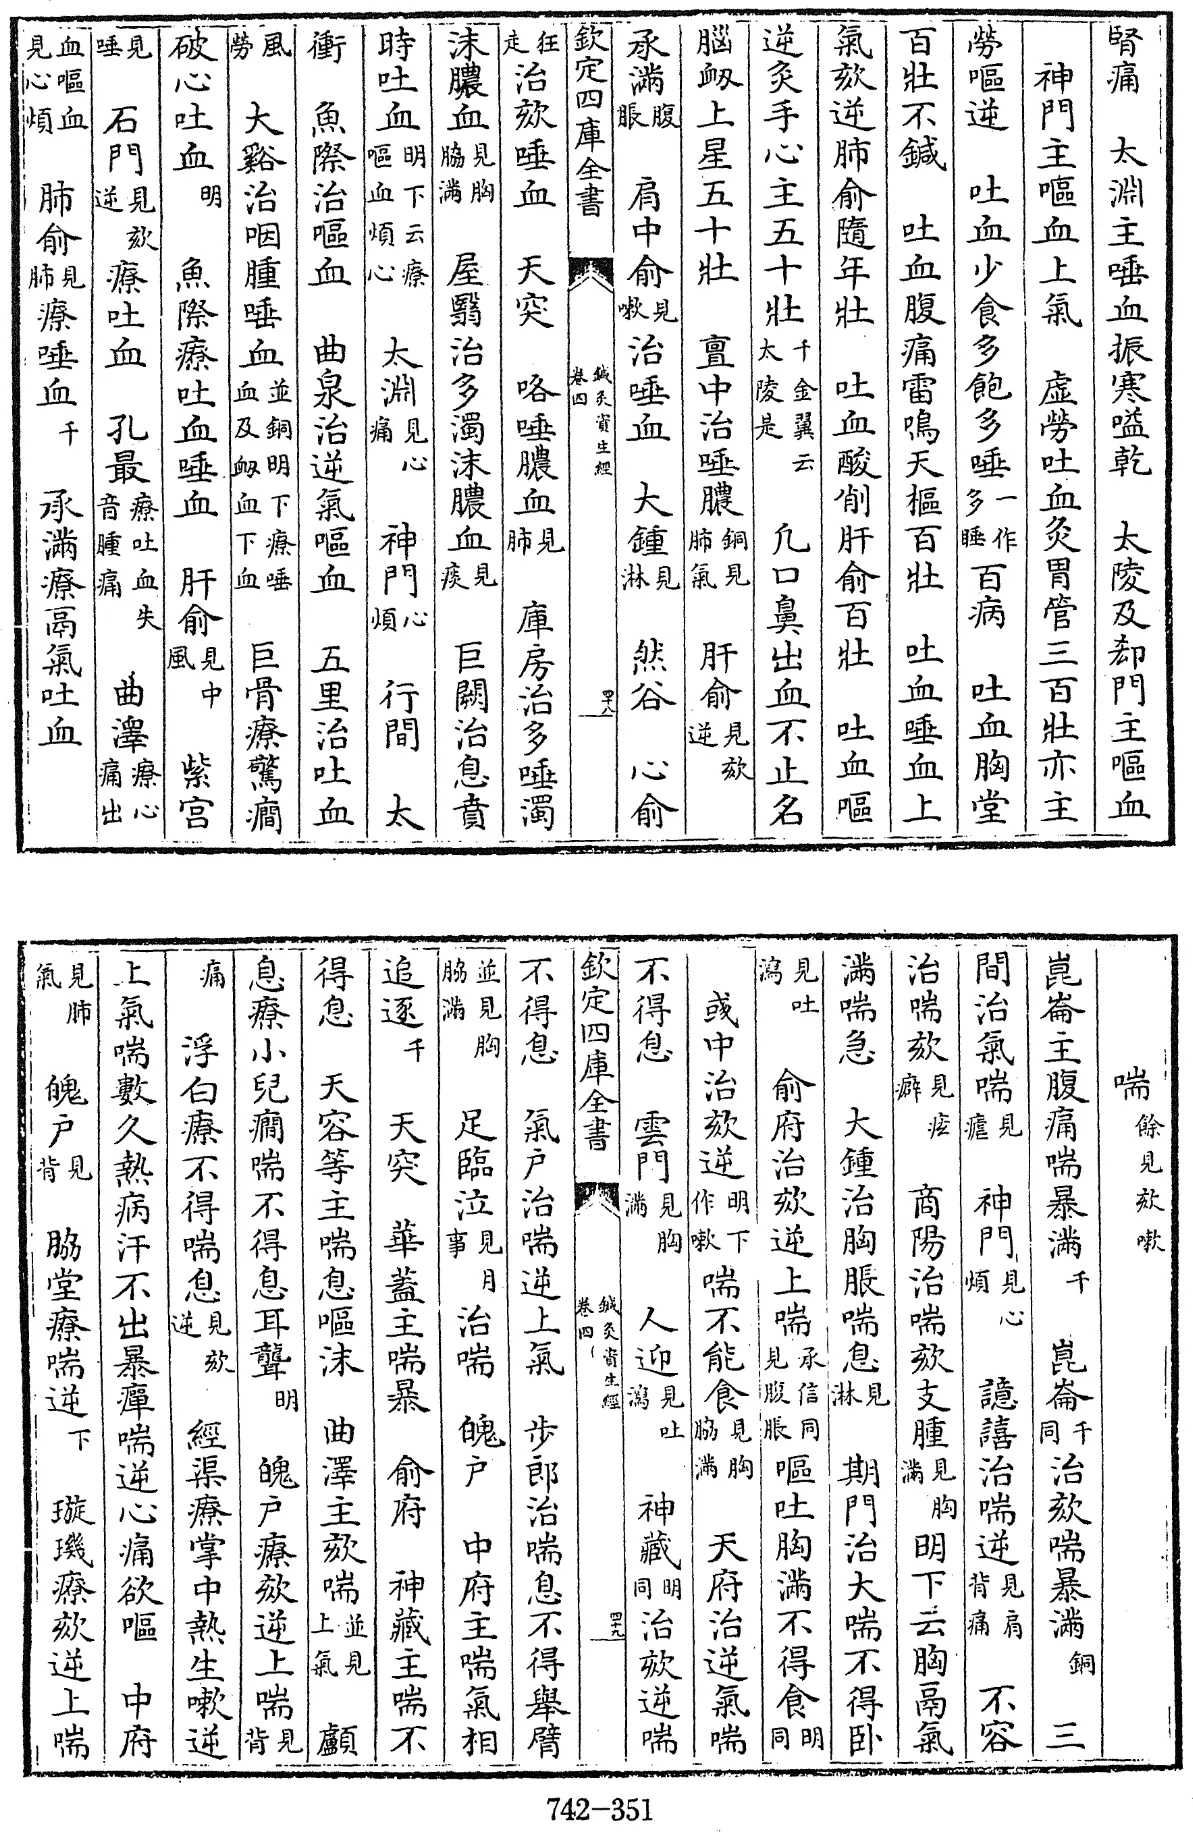 腎痛　太淵主唾血振寒嗌乾　太陵及郄門主嘔血
神門主嘔血上氣　虛勞吐血灸胃管三百壯亦主
勞嘔逆　吐血少食多飽多唾一作多睡百病　吐血胸堂
百壯不鍼　吐血腹痛雷鳴天樞百壯　吐血唾血上
氣欬逆肺俞隨年壯　吐血酸削肝俞百壯　吐血嘔
逆灸手心主五十壯千金翼云太陵是　凡口鼻出血不止名
腦衂上星五十壯　亶中治唾膿銅見肺氣　肝俞見欬逆
承滿腹脹　肩中俞見嗽治唾血　大鍾見淋　然谷　心俞
欽定四庫全書　鍼灸資生經卷四　四十八
狂走治欬唾血　天突　咯唾膿血見肺　庫房治多唾濁
沫膿血見胸脇滿　屋翳治多濁沫膿血見痰　巨闕治息賁
時吐血明下云療嘔血煩心　太淵見心痛　神門心煩　行間　太
衝　魚際治嘔血　曲泉治逆氣嘔血　五里治吐血
風勞　大谿治咽腫唾血並銅明下療唾血及衂血下血　巨骨療驚癇
破心吐血明　魚際療吐血唾血　肝俞見中風　紫宮
見唾　石門見欬逆療吐血　孔最療吐血失音腫痛　曲澤療心痛出
血嘔血見心煩　肺俞見肺療唾血千　承滿療鬲氣吐血
喘餘見欬嗽
崑崙主腹痛喘暴滿千　崑崙千同治欬喘暴滿銅　三
間治氣喘見瘧　神門見心煩　譩譆治喘逆見肩背痛　不容
治喘欬見痃癖　商陽治喘欬支腫見胸滿明下云胸鬲氣
滿喘急　大鍾治胸脹喘息見淋　期門治大喘不得卧
見吐瀉　俞府治欬逆上喘承信同見腹脹嘔吐胸滿不得食明同
或中治欬逆明下作嗽喘不能食見胸脇滿　天府治逆氣喘
不得息　雲門見胸滿　人迎見吐瀉　神藏明同治欬逆喘
欽定四庫全書　鍼灸資生經卷四　四十九
不得息　氣户治喘逆上氣　步郎治喘息不得舉臂
並見胸脇滿　足臨泣見月事治喘　魄户　中府主喘氣相
追逐千　天突　華蓋主喘暴　俞府　神藏主喘不
得息　天容等主喘息嘔沫　曲澤主欬喘並見上氣　顱
息療小兒癇喘不得息耳聾明　魄户療欬逆上喘見背
痛　浮白療不得喘息見欬逆　經渠療掌中熱生嗽逆
上氣喘數久熱病汗不出暴癉喘逆心痛欲嘔　中府
見肺氣　魄户見背　脇堂療喘逆下　璇璣療欬逆上喘
742-351